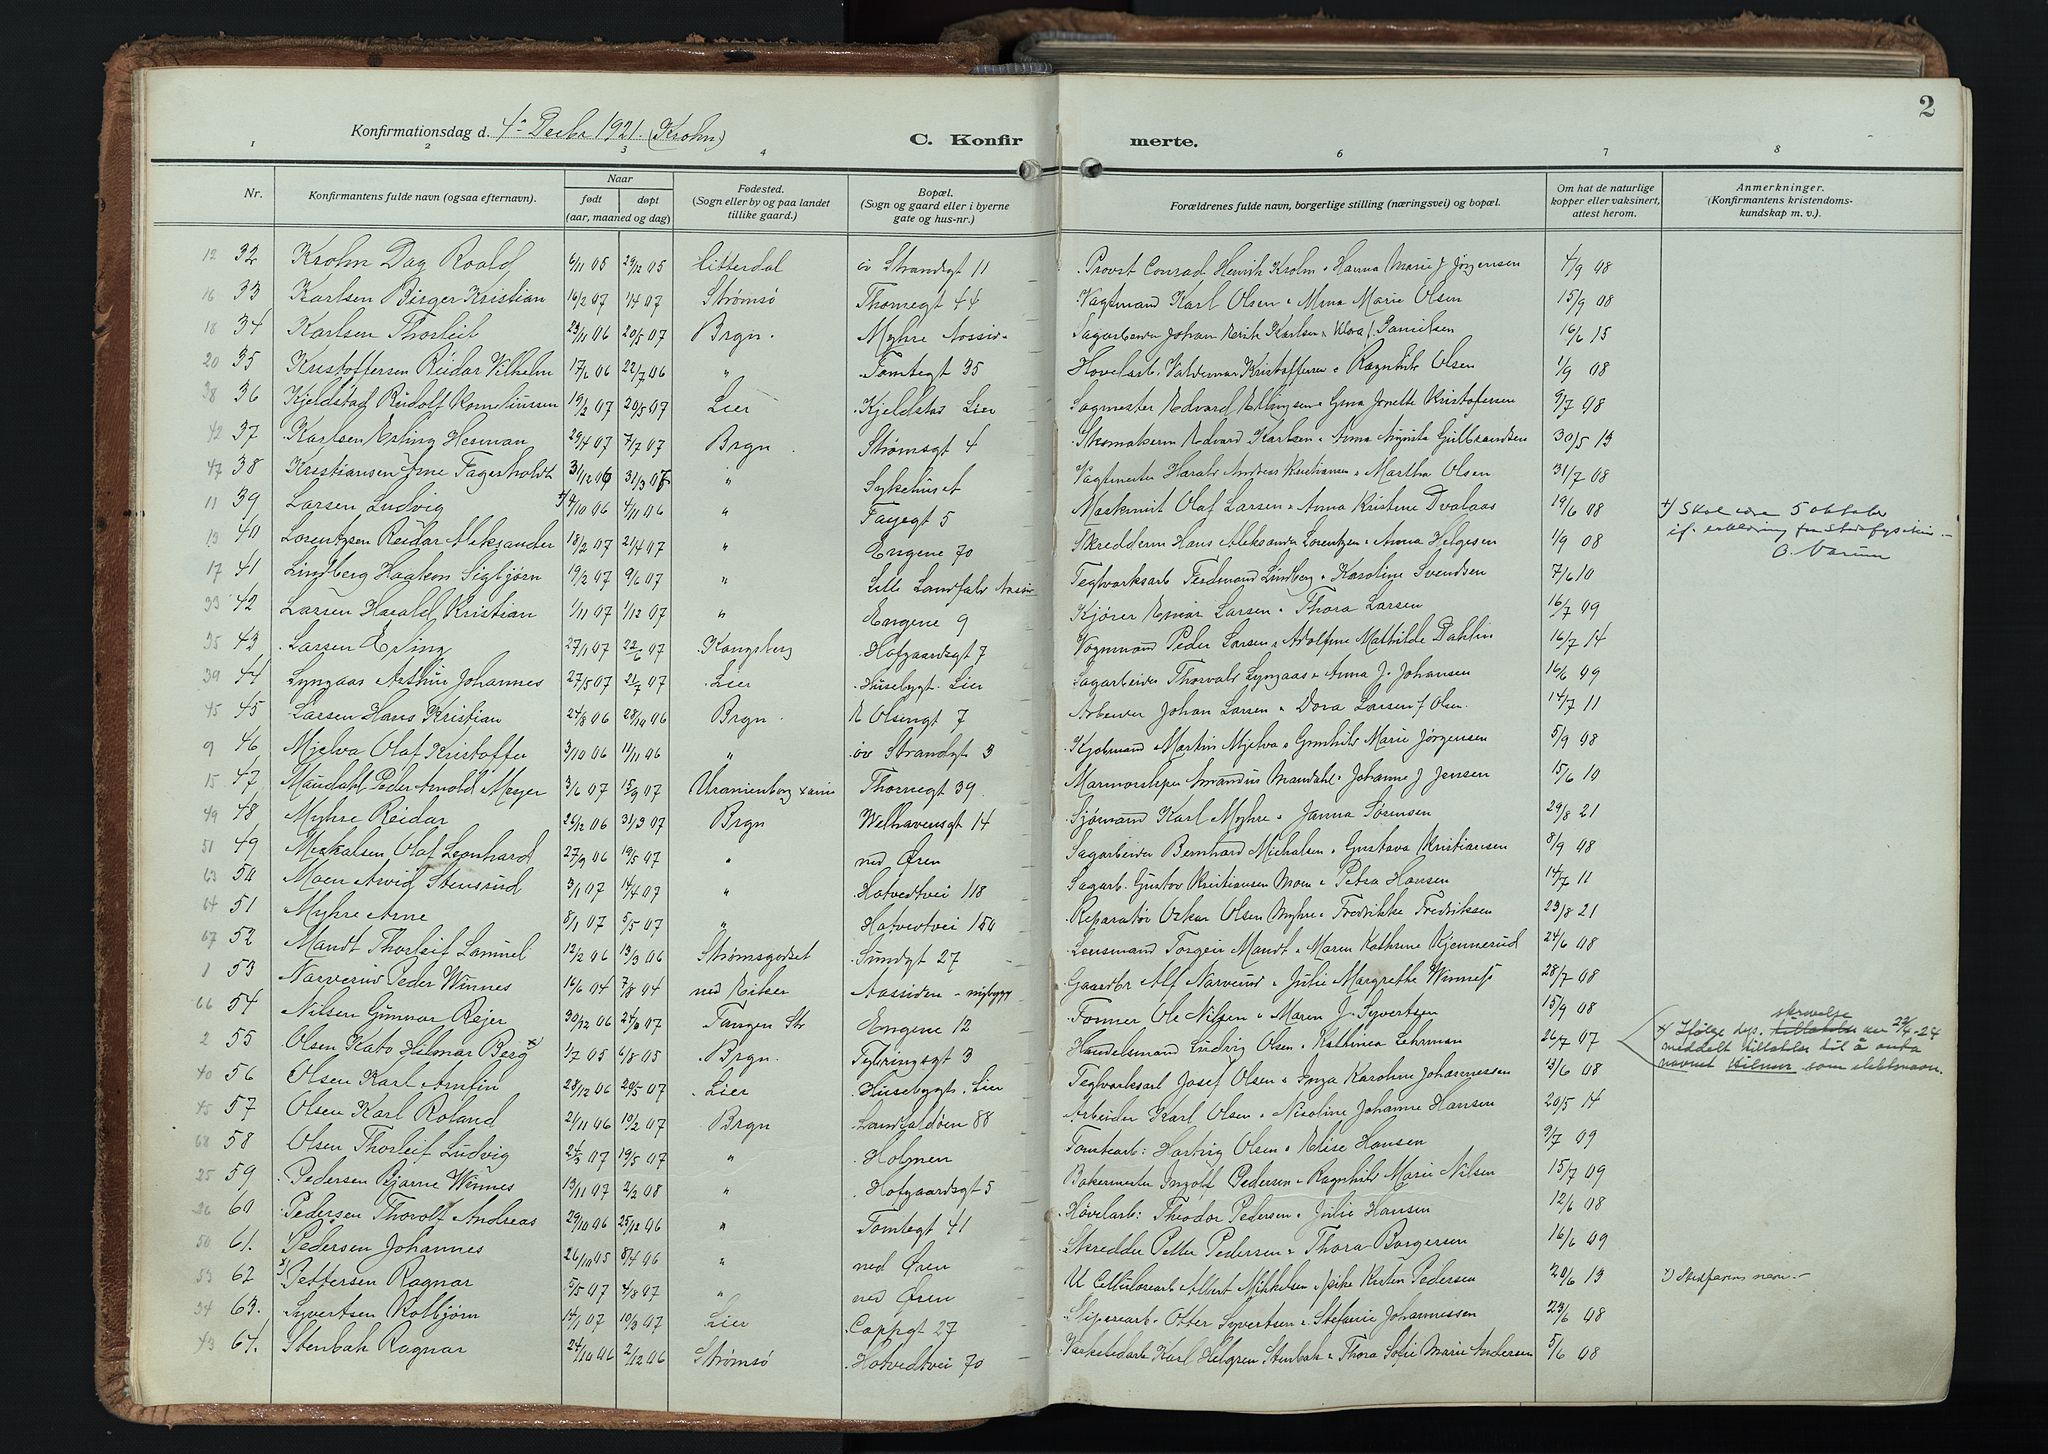 2
Konfirmationsdag d. 4de Decbr 1921. (Krohn)
C. Konfirmerte.
1 2 3 4 6 7 8
Nr. Konfirmantens fulde navn (ogsaa efternavn). Naar født døpt (aar, maaned og dag) Fødested. (Sogn eller by og paa landet tillike gaard.) Bopæl. (Sogn og gaard eller i byerne gate og hus-nr.) Forældrenes fulde navn, borgerlige stilling (næringsvei) og bopæl. Om hat de naturlige kopper eller vaksinert, attest herom. Anmerkninger. (Konfirmantens kristendomskundskap m. v.).
12 32 Krohn Dag Roald 6/11 05 29/12 05 Hitterdal öv Strandgt 11 Provst Conrad Henrik Krohn o Hanna Marie J Jørgensen 4/9 08
16 33 Karlsen Birger Kristian 16/2 07 1/4 07 Strømsø Thornegt 44 Vagtmand Karl Olsen o Marie Olsen 15/9 08
18 34 Karlsen Thorleif 23/11 06 20/5 07 Brgn. Myhre Aassid. Sagarbeider Johan Karlsen o Klora f. Danielsen 16/6 15
20 35 Kristoffersen Reidar Vilhelm 17/6 06 22/7 06 " Tomtegt 35 Hövelarb. Valdemar Kristoffersen o Ragnhild Olsen 1/9 08
38 36 Kjeldstad Rudolf Korneliussen 19/2 07 20/5 07 Lier Kjeldstad Lier Sagmester Edvard Ellingsen o Jonette Kristofersen 9/7 08
42 37 Karlsen Erling Herman 29/4 07 7/7 07 Brgn Strømsgt 4 Skomakerm Edvard Karlsen o Anna Augusta Gulbrandsen 30/5 13
47 38 Kristiansen Arne Fagerholdt 31/12 06 31/3 07 " Sykehuset Vagtmester Harald Andreas Kristiansen o Martha Olsen 31/7 08
11 39 Larsen Ludvig x) 4/10 06 4/11 06 " Fayegt 5 Maskinist Olaf Larsen o Anna Kristine Dvalaas 19/6 08 x) Skal være 5 oktober
13 40 Lorentzen Reidar Aleksander 18/2 07 21/4 07 " Engene 70 Skredderm Hans Aleksander Lorentzen o Anna Helgesen 1/9 08
17 41 Lindberg Haakon Sigbjørn 19/2 07 9/6 07 " Lille Landfald Aassid Teglverksarb Ferdinand Lindberg o Karoline Svendsen 7/6 10
33 42 Larsen Harald Kristian 1/11 07 1/12 07 " Engene 9 Kjører Einar Larsen o Thora Larsen 16/7 09
35 43 Larsen Erling 27/1 07 22/6 07 Kongsberg Hofgaardsgt 7 Vognmand Peder Larsen o Adolfine Mathilde Dahlin 16/7 14
39 44 Lyngaas Arthur Johannes 27/5 07 21/7 07 Lier Husebygt. Lier Sagarbeider Thorvald Lyngaas o Anna J. Johansen 16/6 09
45 45 Larsen Hans Kristian 24/8 06 28/10 06 Brgn. E Olsensgt 7 Arbeider Johan Larsen o Dora Larsen f Olsen 14/7 11
9 46 Mjelva Olaf Kristoffer 3/10 06 11/11 06 " öv Strandgt 3 Kjølmand Martin Mjelva o Gunhild Marie Jørgensen 5/9 08
15 47 Maudahl Peder Arnold Meyer 3/6 07 15/9 07 Uranienborg Thornegt 39 Marmorsliper Amandus Maudahl o Johanne J Jensen 15/6 10
49 48 Myhre Reidar 26/12 06 31/3 07 Brgn Welhavensgt 14 Sjømand Karl Myhre o Janna Sørensen 29/8 21
51 49 Mikalsen Olaf Leonhard 27/9 06 19/5 07 " ned Øren Sagarbeider Bernhard Michalsen o Gustava Kristiansen 8/9 08
63 50 Moen Arvid Stensrud 3/1 07 14/4 07 " Hotvedtvei 118 Sagarb. Gustav Kristiansen Moen o Petra Hansen 14/7 11
64 51 Myhre Arne 8/1 07 5/5 07 " Hotvedtvei 150 Reparatør Oskar Olsen Myhre o Fredrikke Fredriksen 23/8 21
67 52 Mandt Thorleif Samuel 12/2 06 13/3 06 Strømsgodset Sundgt 27 Lensmand Torgeir Mandt o Maren Kathrine Kjennerud 24/6 08
1 53 Narverud Peder Winnes 16/6 04 7/8 04 ned Eiker Aassiden - nybygg Gaardbr Alf Narverud o Julie Margrethe Winnes 28/7 08
66 54 Nilsen Gunnar Rejer 30/12 06 24/3 07 Tangen Str Engene 12 Former Ole Nilsen o Maren J. Syvertsen 15/9 08
2 55 Olsen Kato Hilmar Berg x) 1/7 05 6/8 05 Brgn. Tyringsgt 3 Handelsmand Ludvig Olsen o Kathinca Lehrman 26/7 07 x) Ifølge dep. skrivelse av 29/4-24 meddelt tillatelse til å anta navnet Hilmer som slektsnavn.
40 56 Olsen Karl Amfin 28/12 06 20/5 07 Lier Husebygt. Lier Teglverksarb Josef Olsen o Inga Karoline Johannessen 13/6 08
45 57 Olsen Karl Roland 21/11 06 10/2 07 Brgn Landfaldöen 88 Arbeider Karl Olsen o Nicoline Johanne Hansen 20/5 14
68 58 Olsen Thorleif Ludvig 24/3 07 19/5 07 " Holmen Tomtearb: Hartvig Olsen o Elise Hansen 9/7 09
25 59 Pedersen Bjarne Winnes 13/11 07 2/2 08 " Hofgaardsgt 5 Bakermester Ingolf Pedersen o Ragnhild Marie Nilsen 15/7 09
26 60 Pedersen Thorolf Andreas 29/10 06 25/12 06 " Tomtegt 41 Hövelarb: Theodor Pedersen o Julie Hansen 12/6 08
50 61. Pedersen Johannes 26/10 05 8/4 06 " ned Øren Skredder Petter Pedersen o Thora Borgersen 16/6 09
53 62 x) Pettersen Ragnar 5/5 07 4/8 07 " ned Øren U Cellulosearb Albert Mikkelsen o Kirsten Pedersen 20/6 13 x) Stedfarens navn.
34 63. Syvertsen Kolbjørn 14/1 07 10/3 07 Lier Cappgt 27 Sliperarb. Otter Syvertsen o Stefanie Johannessen 23/6 08
43 64. Stenbak Ragnar 24/10 06 2/12 06 Strømsø Hotvedtvei 70 Karl Helgren Stenbak o Thora Sofie Marie Andersen 5/6 08